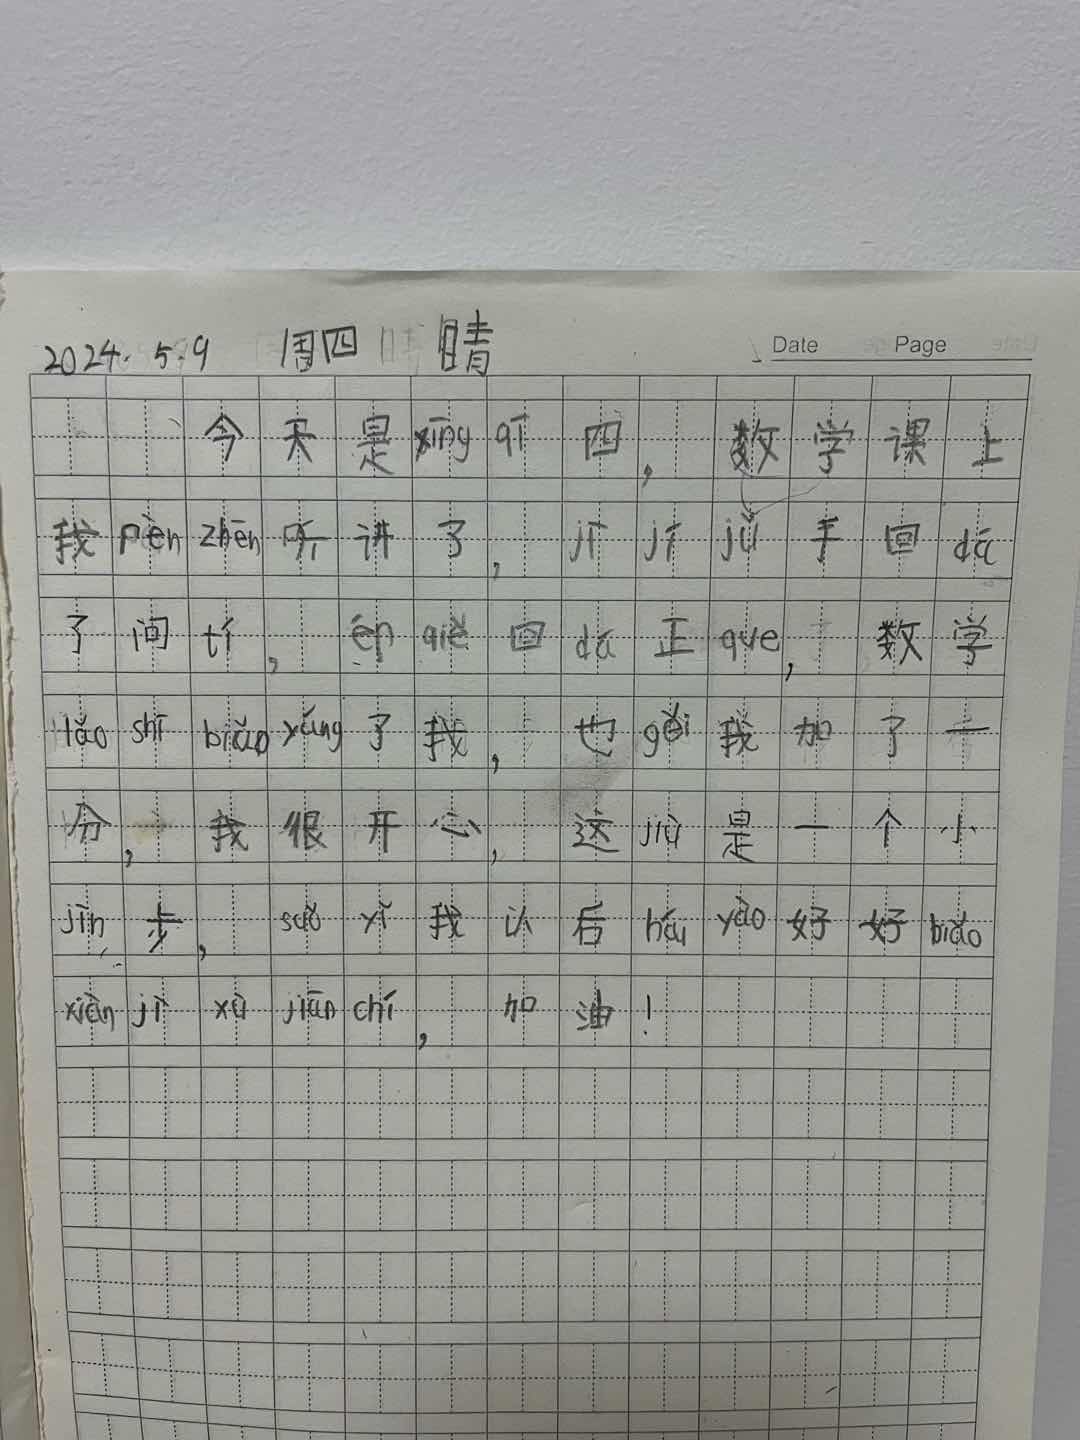 2024.5.9 周四 晴
Date Page
今天是xīng qī四，数学课上
我pèn zhēn听讲了，jī jí jǔ手回dá
了问tí，én qiě回dá正que，数学
lǎo shī biǎo yáng了我，也gěi我加了一
分，我很开心，这jiù是一个小
jìn步，suǒ yǐ我以后hái yào好好biǎo
xiàn jì xù jiān chí，加油！